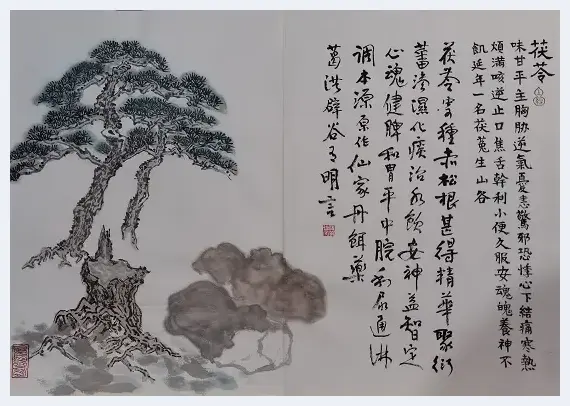 茯苓
味甘平主胸胁逆氣憂恚驚邪恐悸心下結痛寒熱
煩滿咳逆止口焦舌幹利小便久服安魂魄養神不
飢延年一名茯菟生山谷
茯苓寄種赤松根甚得精華聚衍
蕃滲濕化痰治水飲安神益智定
心魂健脾和胃平中脘利尿通淋
調本源原作仙家丹餌藥
葛洪辟谷有明言